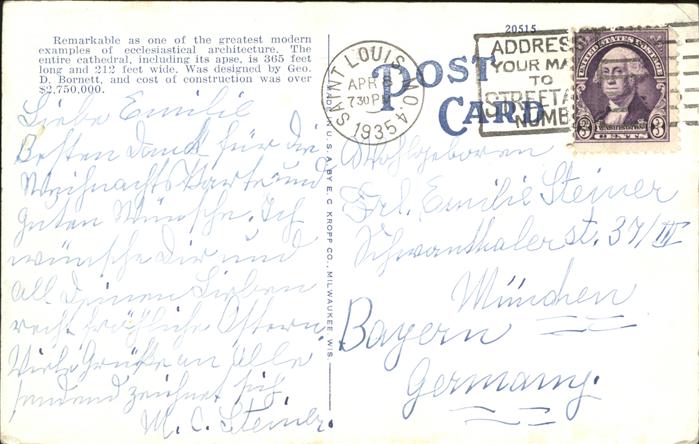 Remarkable as one of the greatest modern
examples of ecclesiastical architecture. The
entire cathedral, including its apse, is 365 feet
long and 212 feet wide. Was designed by Geo.
D. Bornett, and cost of construction was over
$2,750,000.
Liebe Emilie
Besten Dank für die
Weihnachts Karte und
guten Wünsche. Ich
wünsche Dir und
all Deinen Lieben
recht fröhliche Ostern.
Viele Grüße an Alle
sendend zeichnet sich
M. C. Steiner.
U.S.A. BY E. C. KROPP CO., MILWAUKEE, WIS.
20515
POST
CARD
SAINT LOUIS, MO. 4
APR
730PM
1935
ADDRESS
YOUR MA
TO
STREET A
NUMB
UNITED STATES POSTAGE
WASHINGTON
3 CENTS 3
Wohlgeboren
Frl. Emilie Steiner
Schwanthalerst. 37/III
München
Bayern
Germany.